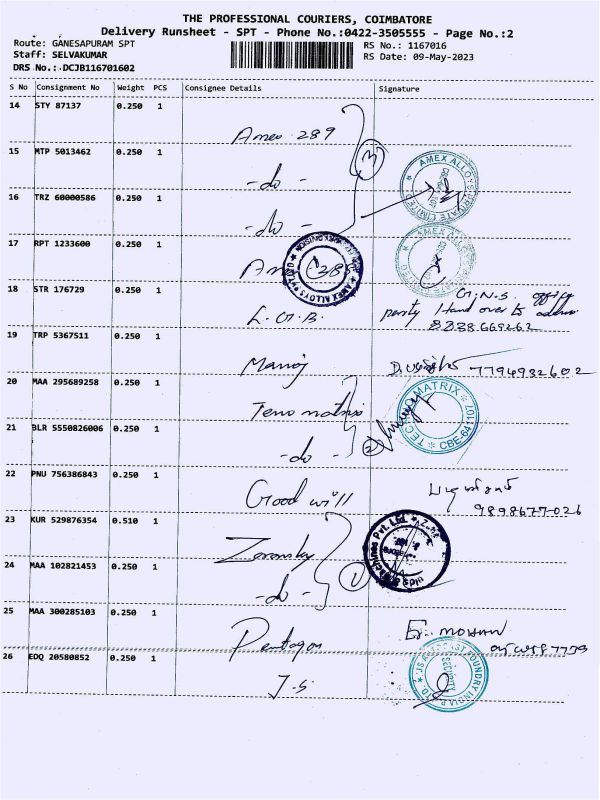 THE PROFESSIONAL COURIERS, COIMBATORE
Delivery Runsheet - SPT - Phone No.:0422-3505555 - Page No.:2
Route: GANESAPURAM SPT
RS No.: 1167016
Staff: SELVAKUMAR
RS Date: 09-May-2023
DRS No.:-DCJB116701602
S No Consignment No Weight PCS Consignee Details Signature
14 STY 87137 0.250 1
Amex 289
15 MTP 5013462 0.250 1
3
- do -
AMEX ALLOYS PRIVATE LIMITED
16 TRZ 60000586 0.250 1
- do -
17 RPT 1233600 0.250 1
AMEX ALLOYS
18 STR 176729 0.250 1
G.N.S. office
party Hand over to
L.G.B.
19 TRP 5367511 0.250 1
Manoj
7794932602
20 MAA 295689258 0.250 1
TECHNO MATRIX CBE-641107
21 BLR 5550826006 0.250 1
2
- do -
22 PNU 756386843 0.250 1
Good will
9898677-026
23 KUR 529876354 0.510 1
24 MAA 102821453 0.250 1
1
- do -
25 MAA 300285103 0.250 1
Pentagon
MOHAN
26 EDQ 20580852 0.250 1
FOUNDRY INDIA SECURITY
J.S